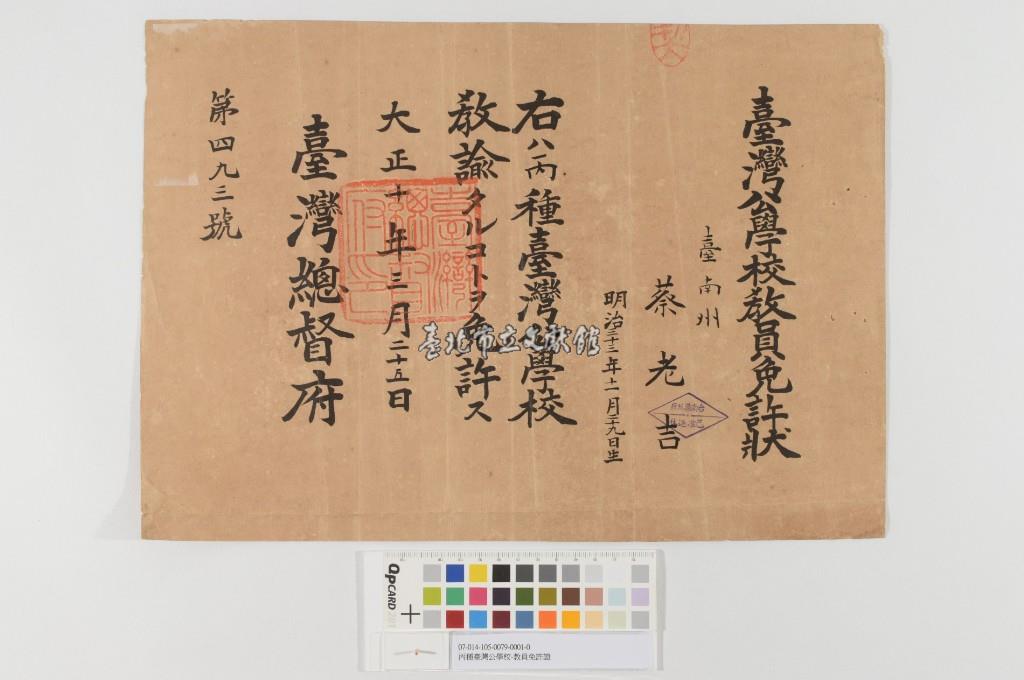 臺灣公學校教員免許狀
臺南州
蔡老吉
明治三十二年十一月二十九日生
右ハ丙種臺灣公學校
教諭タルコトヲ免許ス
大正十年三月二十五日
臺灣總督府
第四九三號
臺灣總督府印
臺北市立文獻館
QPCARD 201
07-014-105-0079-0001-0
丙種臺灣公學校-教員免許證